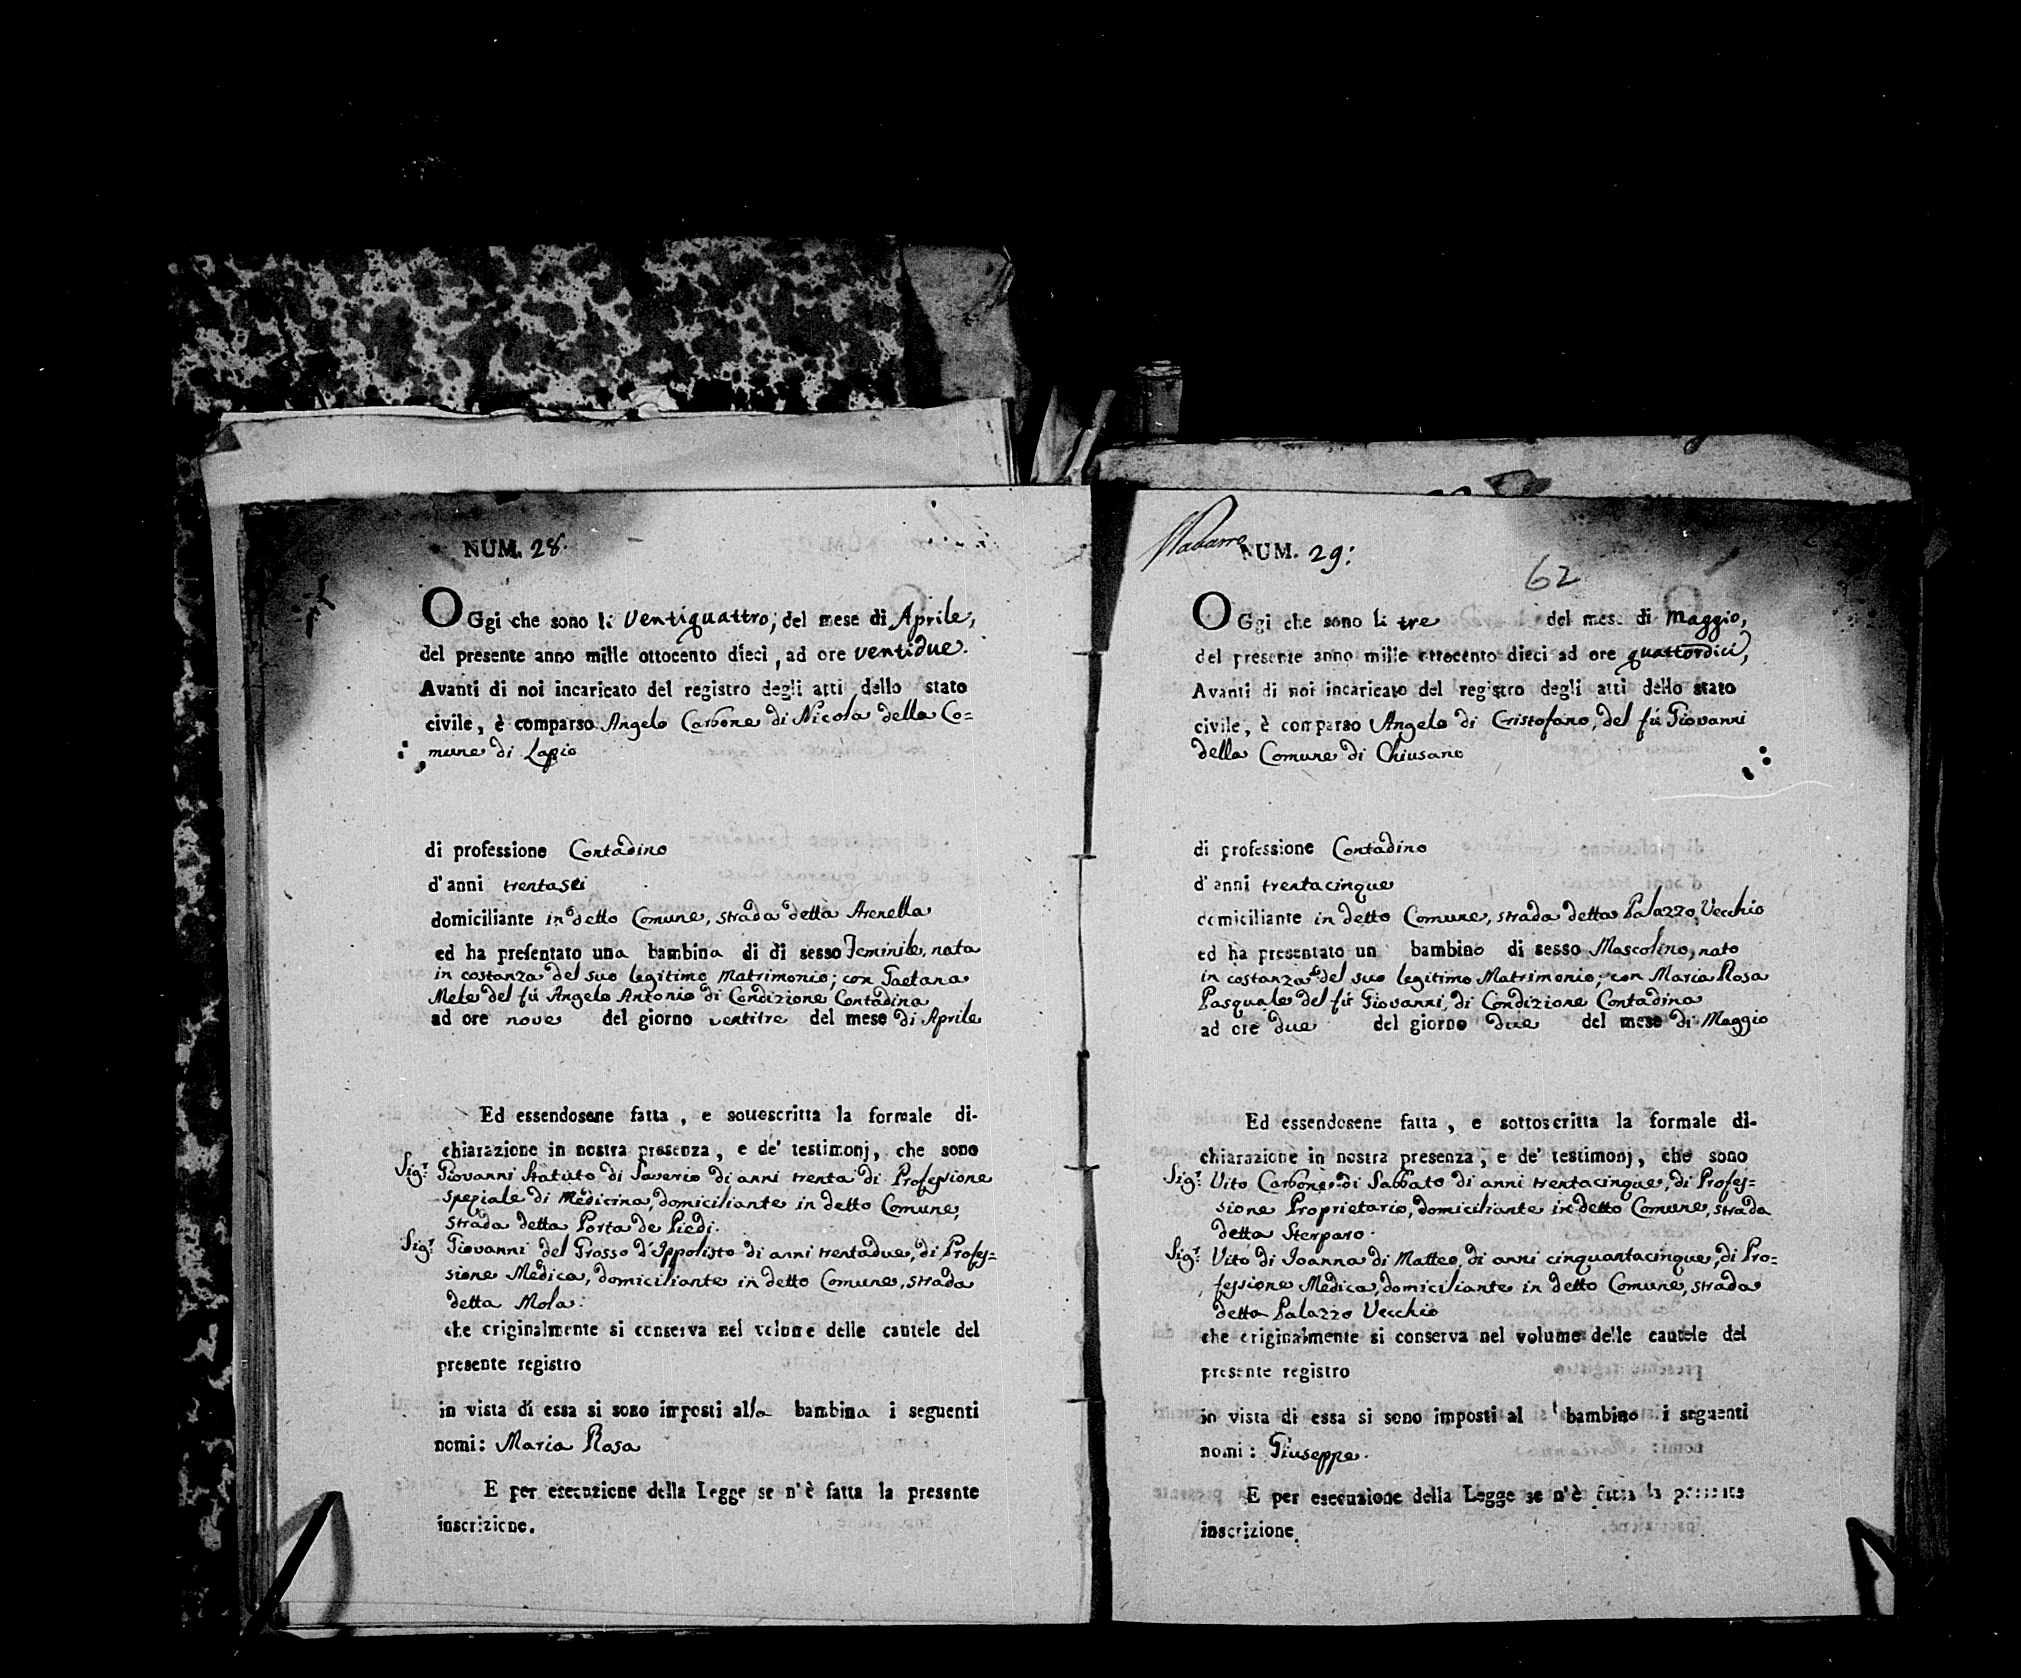 NUM. 28.
OGgi che sono li Ventiquattro, del mese di Aprile,
del presente anno mille ottocento dieci, ad ore ventidue.
Avanti di noi incaricato del registro degli atti dello stato
civile, è comparso Angelo Carbone di Nicola della Co=
mune di Lapio
di professione Contadino
d'anni trentasei
domiciliante in detto Comune, strada detta Arenella
ed ha presentato una bambina di di sesso Feminile, nata
in costanza del suo legitimo Matrimonio; con Gaetana
Mele del fú Angelo Antonio di Condizione Contadina
ad ore nove del giorno ventitre del mese di Aprile
Ed essendosene fatta, e sottoscritta la formale di-
chiarazione in nostra presenza, e de' testimonj, che sono
Sig.r Giovanni Statuto di Saverio di anni trenta di Professione
speziale di Medicina, domiciliante in detto Comune,
strada detta Porta de Piedi.
Sig.r Giovanni del Grosso d'Ippolisto di anni trentadue, di Profes=
sione Medica, domiciliante in detto Comune, strada
detta Mola.
che originalmente si conserva nel volume delle cautele del
presente registro
in vista di essa si sono imposti alla bambina i seguenti
nomi: Maria Rosa
E per esecuzione della Legge se n'è fatta la presente
inscrizione.
NUM. 29:
62
OGgi che sono li tre del mese di Maggio,
del presente anno mille ottocento dieci ad ore quattordici,
Avanti di noi incaricato del registro degli atti dello stato
civile, è comparso Angelo di Cristofano, del fú Giovanni
della Comune di Chiusano
di professione Contadino
d'anni trentacinque
domiciliante in detto Comune, strada detta Palazzo Vecchio
ed ha presentato un bambino di sesso Mascolino, nato
in costanza del suo legitimo Matrimonio; con Maria Rosa
Pasquale del fú Giovanni, di Condizione Contadina
ad ore due del giorno due del mese di Maggio
Ed essendosene fatta, e sottoscritta la formale di-
chiarazione in nostra presenza, e de' testimonj, che sono
Sig.r Vito Carbone di Sabbato di anni trentacinque, di Profes=
sione Proprietario, domiciliante in detto Comune, strada
detta Sterparo.
Sig.r Vito di Joanna di Matteo, di anni cinquantacinque, di Pro=
fessione Medica, domiciliante in detto Comune, strada
detta Palazzo Vecchio
che originalmente si conserva nel volume delle cautele del
presente registro
in vista di essa si sono imposti al bambino i seguenti
nomi: Giuseppe.
E per esecuzione della Legge se n'è fatta la presente
inscrizione.